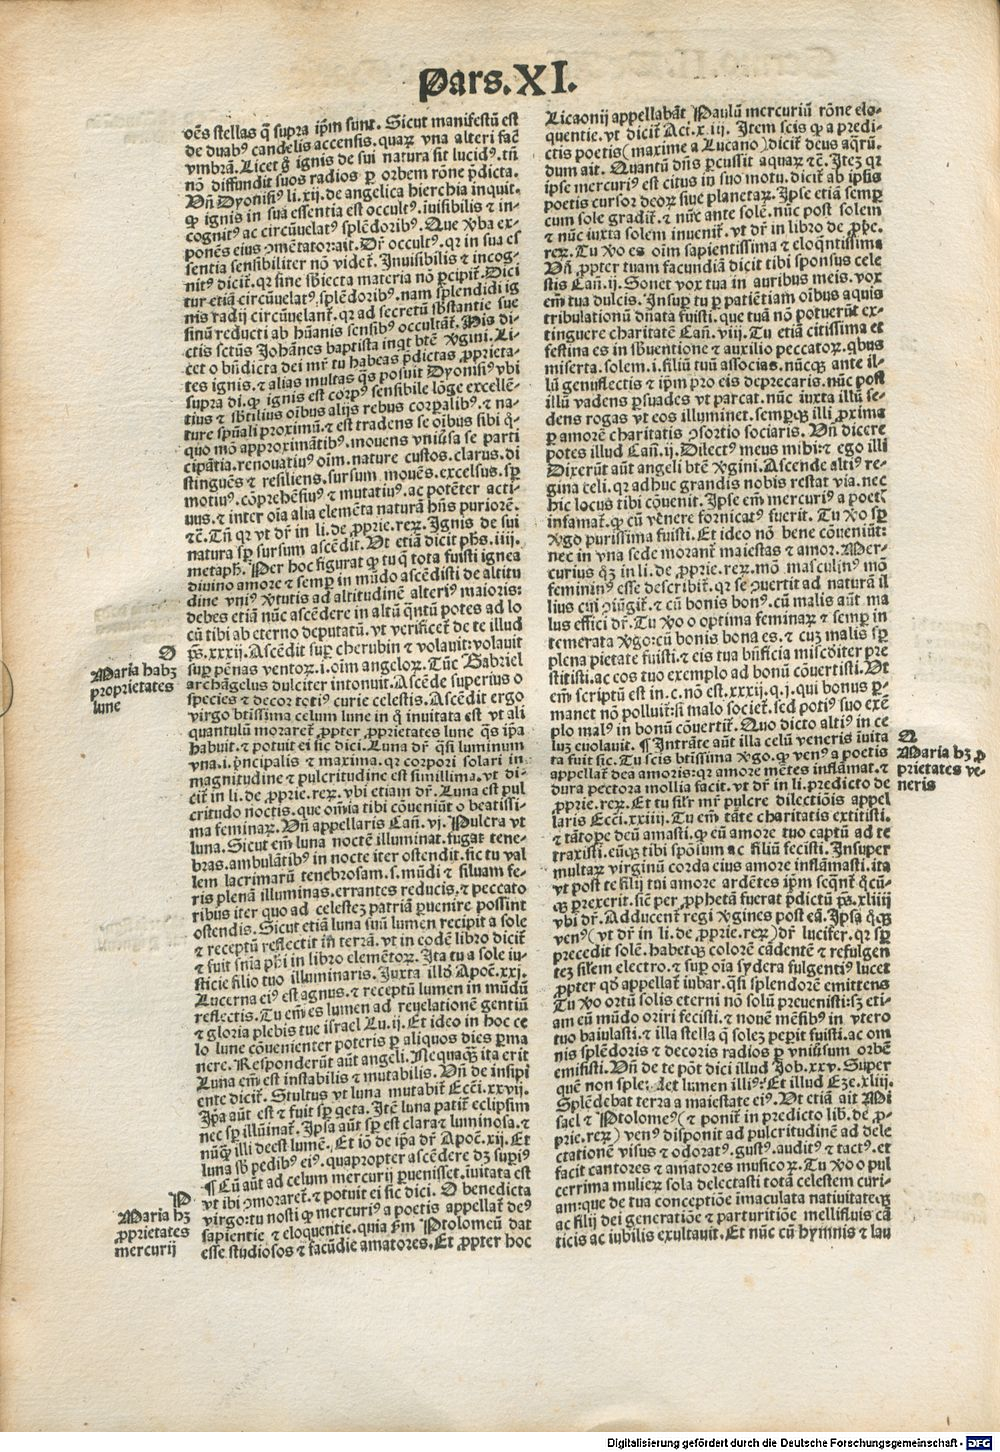 Pars.XI.
oẽs stellas q̃ supra ip̃m sunt. Sicut manifestũ est
de duabꝰ candelis accensis. quaꝝ vna alteri fac̃
vmbrã. Licet g̃ ignis de sui natura sit lucidꝰ. tñ
nõ diffundit suos radios ꝑ orbem rõne p̃dicta.
Vñ Dyonisiꝰ li. xij. de angelica hierchia inquit.
ꝙ ignis in sua essentia est occultꝰ. iuisibilis ⁊ in-
cognitꝰ ac circũuelatꝰ splẽdoribꝰ. Que v̾ba ex-
ponẽs eius ꝯmẽtator: ait. Dr̃ occultꝰ. qꝛ in sua es
sentia sensibiliter nõ videt̃. Inuisibilis ⁊ incog-
nitꝰ dicit̃. qꝛ sine sb̾iecta materia nõ ꝑcipit̃. Dici
tur etiã circũuelatꝰ splẽdoribꝰ. nam splendidi ig
nis radij circũuelant̃. qꝛ ad secretũ sb̾stantie sue
sinũ reducti ab hũanis sensibꝰ occultãt̃. His di-
ctis sctũs Johãnes baptista inqt bt̃e v̾gini. Li-
cet o bñdicta dei mr̃ tu habeas p̃dictas ꝓprieta-
tes ignis. ⁊ alias multas q̃s posuit Dyonisiꝰ vbi
supra di. ꝙ ignis est corpꝰ sensibile lõge excellẽ-
tius ⁊ sb̾tilius oĩbus alijs rebus corꝑalibꝰ. ⁊ na-
ture spũali proximũ. ⁊ est tradens se oĩbus sibi q̃-
quo mõ approximãtibꝰ. mouens vniũsa se parti
cipãtia. renouatiuꝰ oĩm. nature custos. clarus. di
stinguẽs ⁊ resiliens. sursum mouẽs. excelsus. sꝑ
motiuꝰ. cõprehẽsiuꝰ ⁊ mutatiuꝰ. ac potẽter acti-
uus. ⁊ inter oĩa alia elemẽta naturã hñs puriorẽ.
⁊c̃. Tñ qꝛ vt dr̃ in li. de ꝓprie. reꝝ. Ignis de sui
natura sꝑ sursum ascẽdit. Vt etiã dicit phs. iiij.
metaph. Per hoc figurat̃ ꝙ tu q̃ tota fuisti ignea
diuino amore ⁊ semꝑ in mũdo ascẽdisti de altitu
dine vniꝰ v̾tutis ad altitudinẽ alteriꝰ maioris:
debes etiã nũc ascẽdere in altũ q̃ntũ potes ad lo
cũ tibi ab eterno deputatũ. vt verificet̃ de te illud
p̃s. xxxij. Ascẽdit suꝑ cherubin ⁊ volauit: volauit
suꝑ pẽnas ventoꝝ. i. oĩm angeloꝝ. Tũc Gabriel
archãgelus dulciter intonuit. Ascẽde superius o
species ⁊ decor totiꝰ curie celestis. Ascẽdit ergo
virgo btĩssima celum lune in q̃ inuitata est vt ali
quantulũ moraret̃ ꝓpter ꝓprietates lune q̃s ip̃a
habuit. ⁊ potuit ei sic dici. Luna dr̃ q̃si luminum
vna. i. p̃ncipalis ⁊ maxima. qꝛ corpori solari in
magnitudine ⁊ pulcritudine est simillima. vt di-
cit̃ in li. de ꝓprie. reꝝ. vbi etiam dr̃. Luna est pul
critudo noctis. que omĩa tibi cõueniũt o beatissi-
ma feminaꝝ. Vñ appellaris Cañ. vj. Pulcra vt
luna. Sicut em̃ luna noctẽ illuminat. fugat tene-
bras. ambulãtibꝰ in nocte iter ostendit. sic tu val
lem lacrimarũ tenebrosam. s. mũdi ⁊ siluam fe-
ris plenã illuminas. errantes reducis. ⁊ peccato
ribus iter quo ad celestez patriã ꝑuenire possint
ostendis. Sicut etiã luna suũ lumen recipit a sole
⁊ receptũ reflectit in terrã. vt in eodẽ libro dicit̃
⁊ fuit snĩa ph̃i in libro elemẽtoꝝ. Ita tu a sole iu-
sticie filio tuo illuminaris. Juxta illđ Apoẽ. xxj.
Lucerna eiꝰ est agnus. ⁊ receptũ lumen in mũdũ
reflectis. Tu em̃ es lumen ad reuelationẽ gentiũ
⁊ gloria plebis tue israel Lu. ij. Et ideo in hoc ce
lo lune cõuenienter poteris ꝑ aliquos dies ꝑma
nere. Responderũt aũt angeli. Nequaqᷓ ita erit
Luna em̃ est instabilis ⁊ mutabilis. Vñ de insipi
ente dicit̃. Stultus vt luna mutabit̃ Ecc̃i. xxvij.
Ip̃a aũt est ⁊ fuit sꝑ q̃eta. Itẽ luna patit̃ eclipsim
nec sꝑ illũinat̃. Ip̃sa aũt sꝑ est clara ⁊ luminosa. ⁊
nũq̃ illi deest lumẽ. Et iõ de ip̃a dr̃ Apoẽ. xij. Et
luna sb̾ pedibꝰ eiꝰ. quapropter ascẽdere dꝫ suꝑiꝰ
¶ Cũ aũt ad celum mercurij ꝑuenisset. iuitata est
vt ibi ꝯmoraret̃. ⁊ potuit ei sic dici. O benedicta
virgo: tu nosti ꝙ mercuriꝰ a poetis appellat̃ deꝰ
sapientie ⁊ eloquentie. quia s̃m Ptolomeũ dat
esse studiosos ⁊ facũdie amatores. Et ꝓpter hoc
O
Maria habꝫ
proprietates
lune
P
Maria hꝫ
ꝓprietates
mercurij
Licaonij appellabãt Paulũ mercuriũ rõne elo-
quentie. vt dicit̃ Act̃. xiiij. Item scis ꝙ a predi-
ctis poetis (maxime a Lucano) dicit̃ deus aqrũ.
dum ait. Quantũ dñs percussit aquaꝝ ⁊c̃. Itez qꝛ
ipse mercuriꝰ est citus in suo motu. dicit̃ ab ipsis
poetis cursor deoꝝ siue planetaꝝ. Ipse etiã semꝑ
cum sole gradit̃. ⁊ nũc ante solẽ. nũc post solem
⁊ nũc iuxta solem inuenit̃. vt dr̃ in libro de ꝓpꝛ.
reꝝ. Tu v̾o es oĩm sapientissima ⁊ eloq̃ntissima
Vñ ꝓpter tuam facundiã dicit tibi sponsus cele
stis Cañ. ij. Sonet vox tua in auribus meis. vox
em̃ tua dulcis. Insuꝑ tu ꝑ patiẽtiam oĩbus aquis
tribulationũ dñata fuisti. que tuã nõ potuerũt ex-
tinguere charitatẽ Cañ. viij. Tu etiã citissima et
festina es in sb̾uentione ⁊ auxilio peccatoꝝ. qbus
miserta. solem. i. filiũ tuũ associas. nũcqᷓ ante il-
lũ genuflectis ⁊ ip̃m pro eis deprecaris. nũc post
illũ vadens ꝑsuades vt parcat. nũc iuxta illũ se-
dens rogas vt eos illuminet. sempqᷓ illi ꝓxima
ꝑ amorẽ charitatis ꝯsortio sociaris. Vñ dicere
potes illud Cañ. ij. Dilectꝰ meus mihi: ⁊ ego illi
Dixerũt aũt angeli bt̃e v̾gini. Ascende altiꝰ re-
gina celi. qꝛ adhuc grandis nobis restat via. nec
hic locus tibi cõuenit. Ipse em̃ mercuriꝰ a poet̃
infamat̃. ꝙ cũ venere fornicatꝰ fuerit. Tu v̾o sꝑ
v̾go purissima fuisti. Et ideo nõ bene cõueniũt:
nec in vna sede morant̃ maiestas ⁊ amor. Mer-
curius q̃ꝫ in li. de ꝓprie. reꝝ. mõ masculinꝰ mõ
femininꝰ esse describit̃. qꝛ se ꝯuertit ad naturã il
lius cui ꝯiũgit̃. ⁊ cũ bonis bonꝰ. cũ malis aũt ma
lus effici dr̃. Tu v̾o o optima feminaꝝ ⁊ semꝑ in
temerata v̾go: cũ bonis bona es. ⁊ cuz malis sꝑ
plena pietate fuisti. ⁊ eis tua bñficia misc̾diter pre
stitisti. ac eos tuo exemplo ad bonũ cõuertisti. Vt
em̃ scriptũ est in. c. nõ est. xxxij. q. j. qui bonus ꝑ-
manet nõ polluit̃: si malo societ̃. sed potiꝰ suo exẽ
plo malꝰ in bonũ cõuertit̃. Quo dicto altiꝰ in ce
luz euolauit. ¶ Intrãte aũt illa celũ veneris iuita
ta fuit sic. Tu scis btĩssima v̾go. ꝙ venꝰ a poetis
appellat̃ dea amoris: qꝛ amore mẽtes inflamat. ⁊
dura pectora mollia facit. vt dr̃ in li. predicto de
ꝓprie. reꝝ. Et tu silr̃ mr̃ pulcre dilectiõis appel
laris Ecc̃i. xxiiij. Tu em̃ tãte charitatis extitisti.
⁊ tãtoꝑe deũ amasti. ꝙ eũ amore tuo captũ ad te
traxisti. eũcqᷓ tibi spõsum ac filiũ fecisti. Insuper
multaꝝ virginũ corda eius amore inflãmasti. ita
vt post te filij tui amore ardẽtes ip̃m seqñt̃ q̃cũ-
qᷓ prexerit. sic̃ per ꝓphetã fuerat p̃dictũ p̃s. xliiij
vbi dr̃. Adducent̃ regi v̾gines post eã. Ip̃sa q̃cqᷓ
venꝰ (vt dr̃ in li. de ꝓprie. reꝝ) dr̃ lucifer. qꝛ sꝑ
precedit solẽ. habetqᷓ colorẽ cãdentẽ ⁊ refulgen
tez silem electro. ⁊ suꝑ oĩa sydera fulgentiꝰ lucet
ꝓpter qđ appellat̃ iubar. q̃si splendorẽ emittens
Tu v̾o ortũ solis eterni nõ solũ preuenisti: sꝫ eti-
am eũ mũdo oriri fecisti. ⁊ nouẽ mẽsibꝰ in vtero
tuo baiulasti. ⁊ illa stella q̃ solez peꝑit fuisti. ac om
nis splẽdoris ⁊ decoris radios ꝑ vniũsum orbẽ
emisisti. Vñ de te põt dici illud Job. xxv. Super
quẽ non splendet lumen illiꝰ. Et illud Eze. xliij.
Splẽdebat terra a maiestate eiꝰ. Vt etiã ait Mi
sael ⁊ Ptolomeꝰ (⁊ ponit̃ in predicto lib. de ꝓ-
prie. reꝝ) venꝰ disponit ad pulcritudinẽ ad dele
ctationẽ visus ⁊ odoratꝰ. gustꝰ. auditꝰ ⁊ tactꝰ. et
facit cantores ⁊ amatores musicoꝝ. Tu v̾o o pul
cerrima mulieꝝ sola delectasti totã celestem curi-
am: que de tua conceptiõe imaculata natiuitateqᷓ
ac filij dei generatiõe ⁊ parturitiõe mellifluis cã
ticis ac iubilis exultauit. Et nũc cũ hymnis ⁊ lau
Q
Maria hꝫ ꝓ
prietates ve-
neris
Digitalisierung gefördert durch die Deutsche Forschungsgemeinschaft - DFG